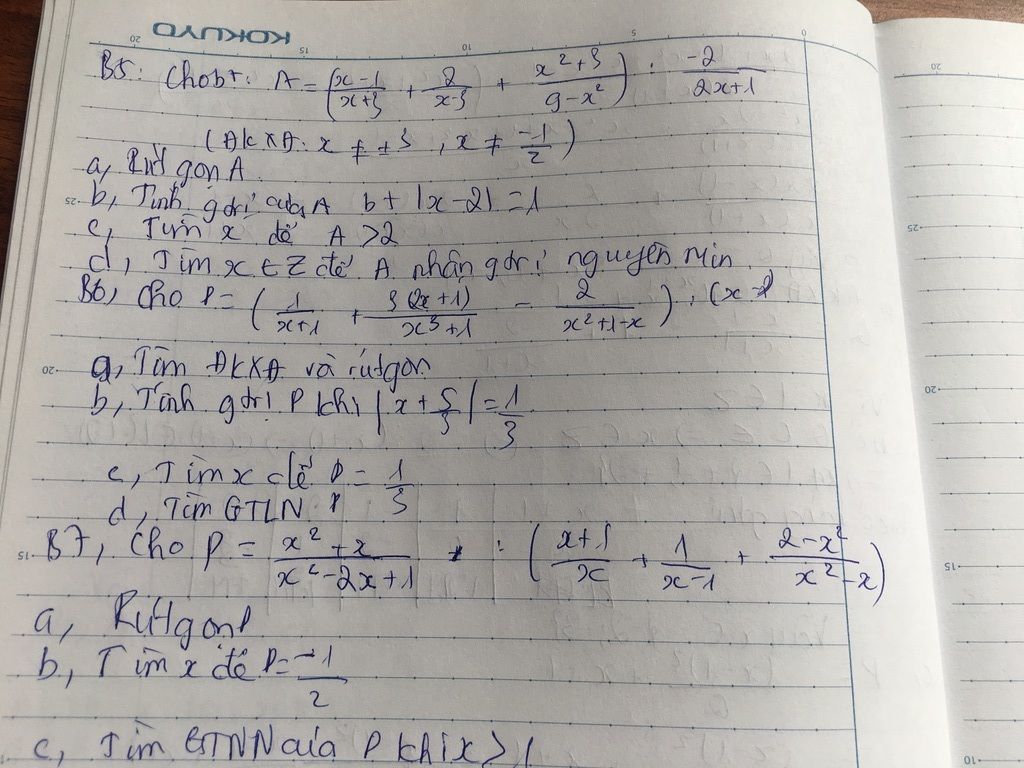 KOKUYO
20 15 10 5 0
B5: Cho bt: A = (x-1/x+3 + 2/x-3 + x²+3/9-x²) : -2/2x+1
(ĐKXĐ: x ≠ ±3, x ≠ -1/2)
a, Rút gọn A
25 b, Tính gtrị của A bt |x-2| = 1
c, Tìm x để A > 2
d, Tìm x ∈ Z để A nhận gtrị nguyên Min
B6, Cho P = (1/x+1 + 3(2x+1)/x³+1 - 2/x²+1-x)
20 a, Tìm ĐKXĐ và rút gọn
b, Tính gtrị P khi |x + 5/3| = 1/3
c, Tìm x để P = 1/3
d, Tìm GTLN P
15 B7, Cho P = x²+x/x²-2x+1 : (x+1/x + 1/x-1 + 2-x²/x²-x)
a, Rút gọn P
b, Tìm x để P = -1/2
c, Tìm GTNN của P khi x > 1
20
25
20
15
10